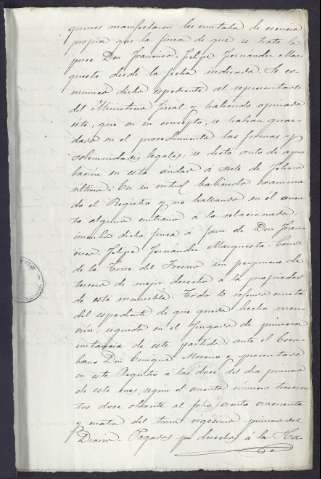 quienes manifestaron les constaba de ciencia
propia que la finca de que se trata la
posee Don Francisco Felipe Fernandez Mar-
questa desde la fecha indicada. Se co-
municó dicho espediente al representante
del Ministerio fiscal y habiendo opinado
este, que en su concepto, se habian guar-
dado en el procedimiento las formas y
solemnidades legales, se dictó auto de apro-
bacion en esta ciudad á siete de febrero
último. En su virtud habiendo examina-
do el Registro y no hallando en el asien-
to alguno contrario á lo relacionado
inscribo dicha finca á favor de Don Fran-
cisco Felipe Fernandez Marquesta Conde
de la Torre del Fresno sin perjuicio de
tercero de mejor derecho á la propiedad
de este inmueble. Todo lo referido consta
del espediente de que queda hecha men-
cion seguido en el Juzgado de primera
instancia de este partido ante el Escri-
bano Don Moreno y presentado
en este Registro á las doce del dia primero
de este mes, segun el asiento número doscien-
tos doce obrante al folio ciento cincuenta
y cuatro del tomo primero del
Diario. Pagados por derechos á la Ha-